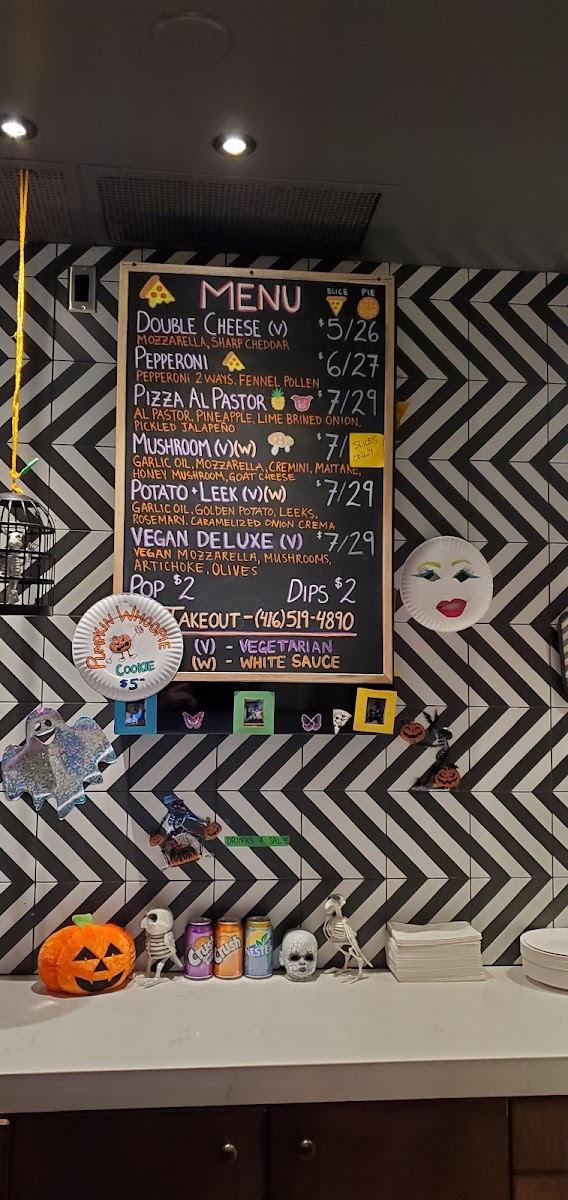 MENU
SLICE PIE
DOUBLE CHEESE (V) $5/26
MOZZARELLA, SHARP CHEDDAR
PEPPERONI $6/27
PEPPERONI 2 WAYS, FENNEL POLLEN
PIZZA AL PASTOR $7/29
AL PASTOR, PINEAPPLE, LIME BRINED ONION,
PICKLED JALAPEÑO
MUSHROOM (V)(W) $7/
SLICES
ONLY
GARLIC OIL, MOZZARELLA, CREMINI, MAITAKE,
HONEY MUSHROOM, GOAT CHEESE
POTATO + LEEK (V)(W) $7/29
GARLIC OIL, GOLDEN POTATO, LEEKS,
ROSEMARY, CARAMELIZED ONION CREMA
VEGAN DELUXE (V) $7/29
VEGAN MOZZARELLA, MUSHROOMS,
ARTICHOKE, OLIVES
POP $2 DIPS $2
TAKEOUT - (416)519-4890
(V) - VEGETARIAN
(W) - WHITE SAUCE
PUMPKIN WHOOPIE
COOKIE
$5-
DRINKS 4 SALE
Crush
Crush
NESTEA